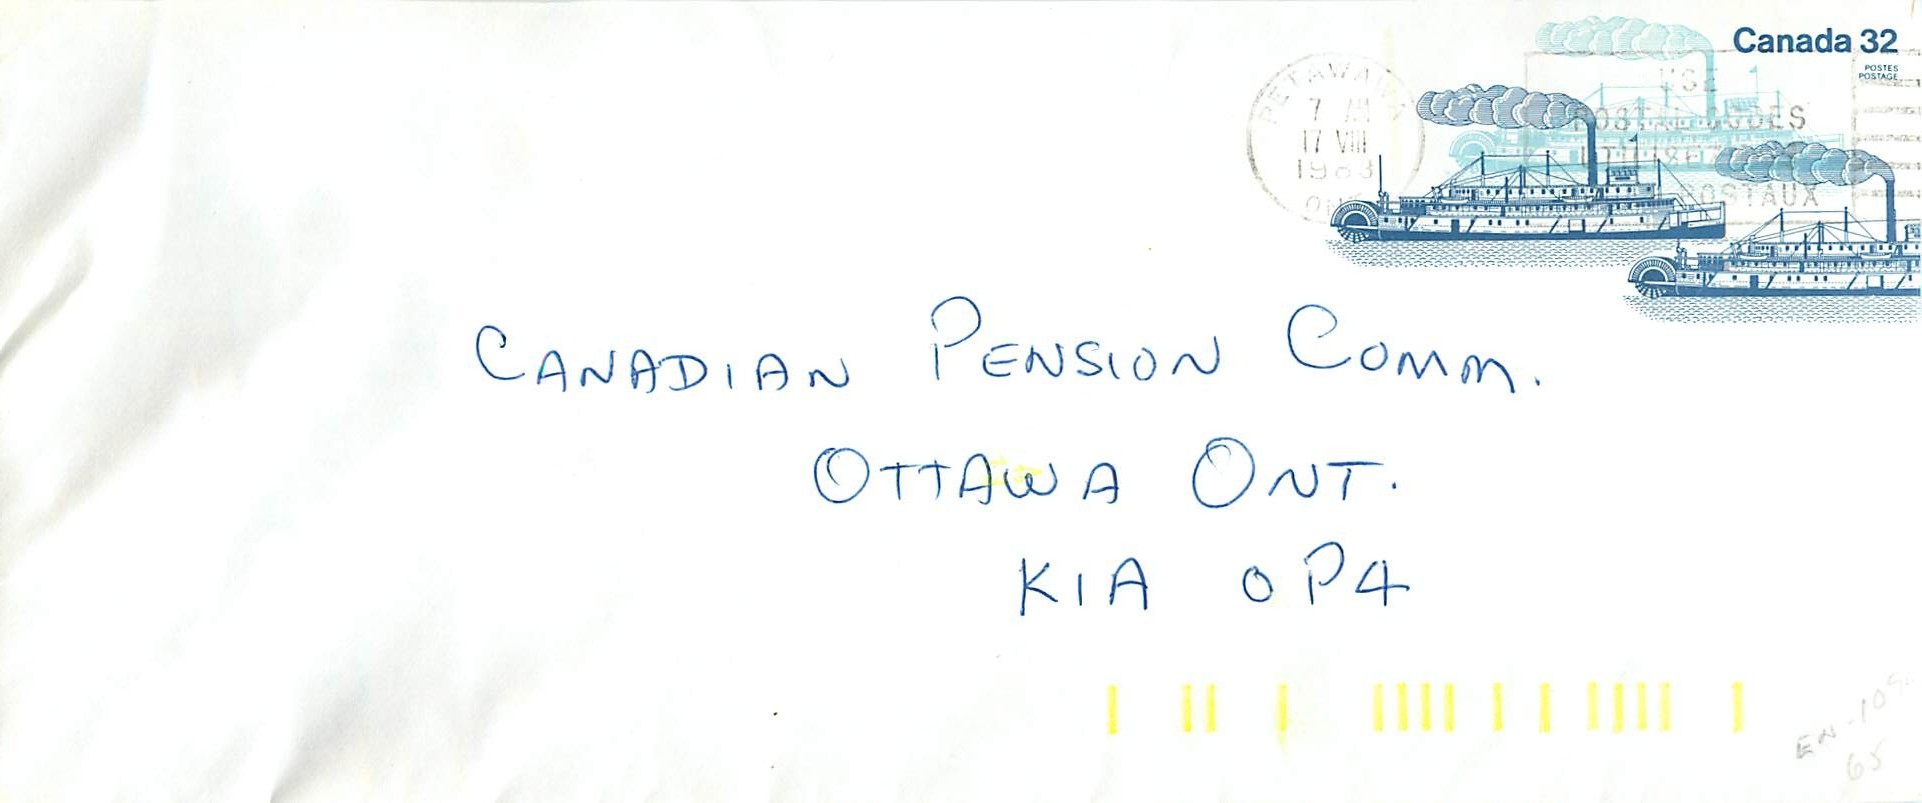 Canada 32
POSTES
POSTAGE
PETAWAWA
7 AM
17 VIII
1983
ONT
USE
POSTAL CODES
UTILISEZ
POSTAUX
CANADIAN PENSION COMM.
OTTAWA ONT.
K1A 0P4
EN-109
65